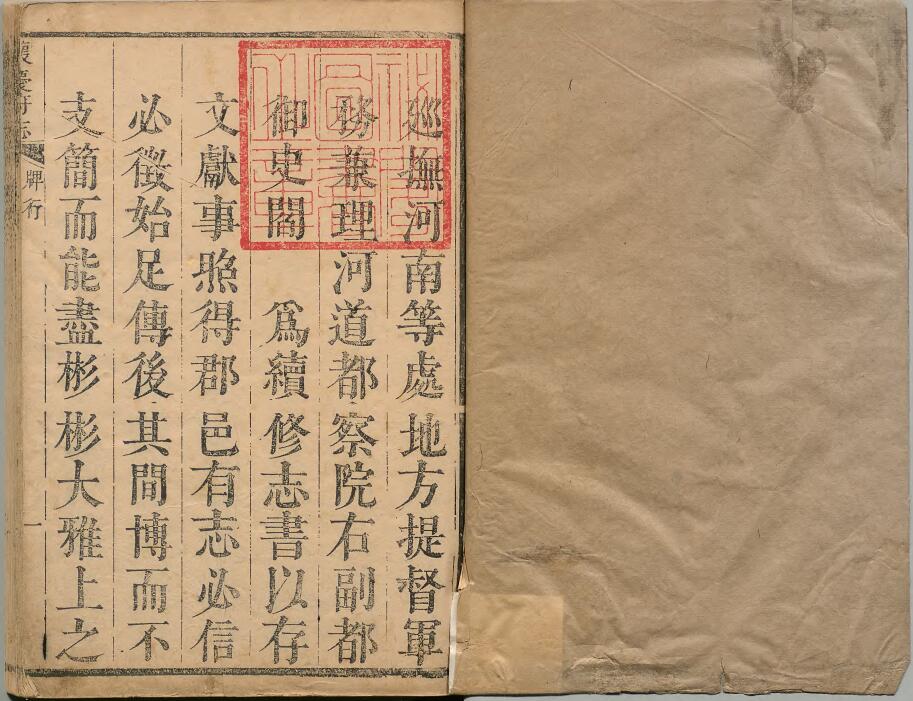 巡撫河南等處地方提督軍
務兼理河道都察院右副都
御史閻　爲續修志書以存
文獻事照得郡邑有志必信
必徵始足傳後其間博而不
支簡而能盡彬彬大雅上之
懷慶府志 牌行 一